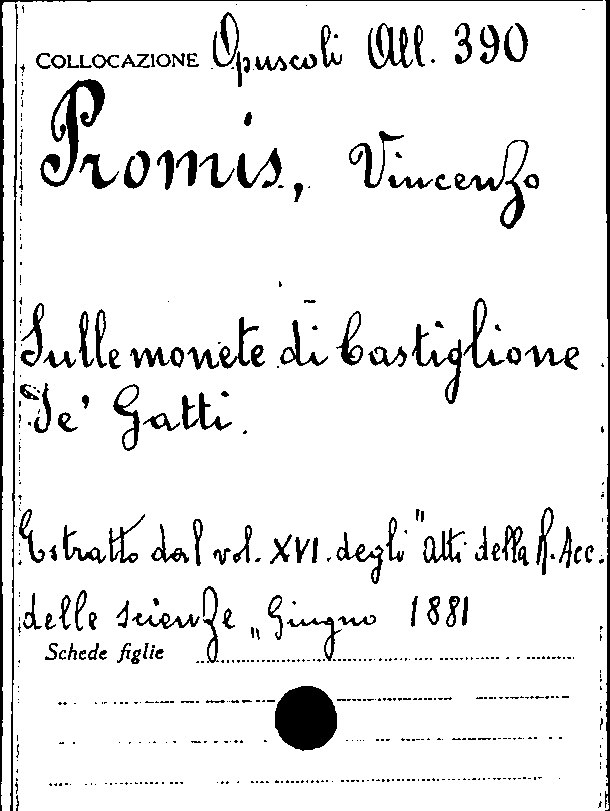 COLLOCAZIONE Opuscoli All. 390
Promis, Vincenzo
Sulle monete di Castiglione
De' Gatti.
Estratto dal vol. XVI. degli "Atti della R. Acc.
delle scienze „ Giugno 1881
Schede figlie